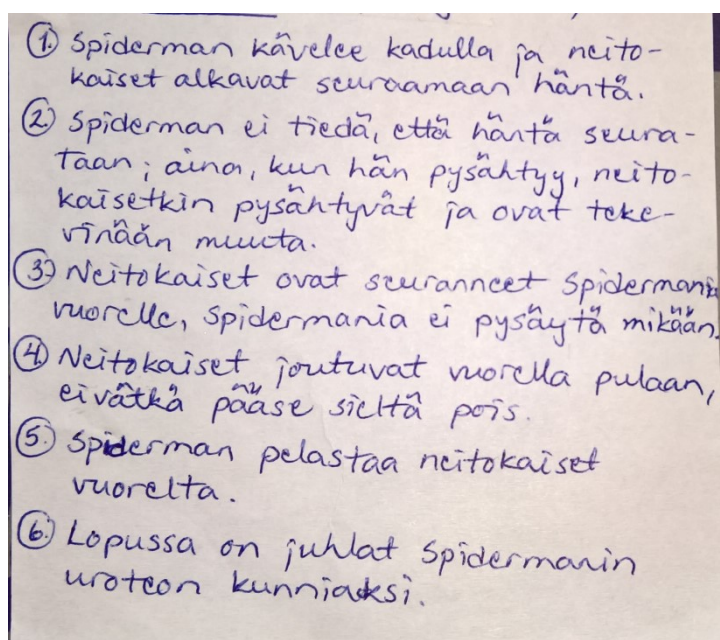 1. Spiderman kävelee kadulla ja neito-
kaiset alkavat seuraamaan häntä.
2. Spiderman ei tiedä, että häntä seura-
taan; aina, kun hän pysähtyy, neito-
kaisetkin pysähtyvät ja ovat teke-
vinään muuta.
3. Neitokaiset ovat seuranneet Spidermania
vuorelle, Spidermania ei pysäytä mikään.
4. Neitokaiset joutuvat vuorella pulaan,
eivätkä pääse sieltä pois.
5. Spiderman pelastaa neitokaiset
vuorelta.
6. Lopussa on juhlat Spidermanin
uroteon kunniaksi.